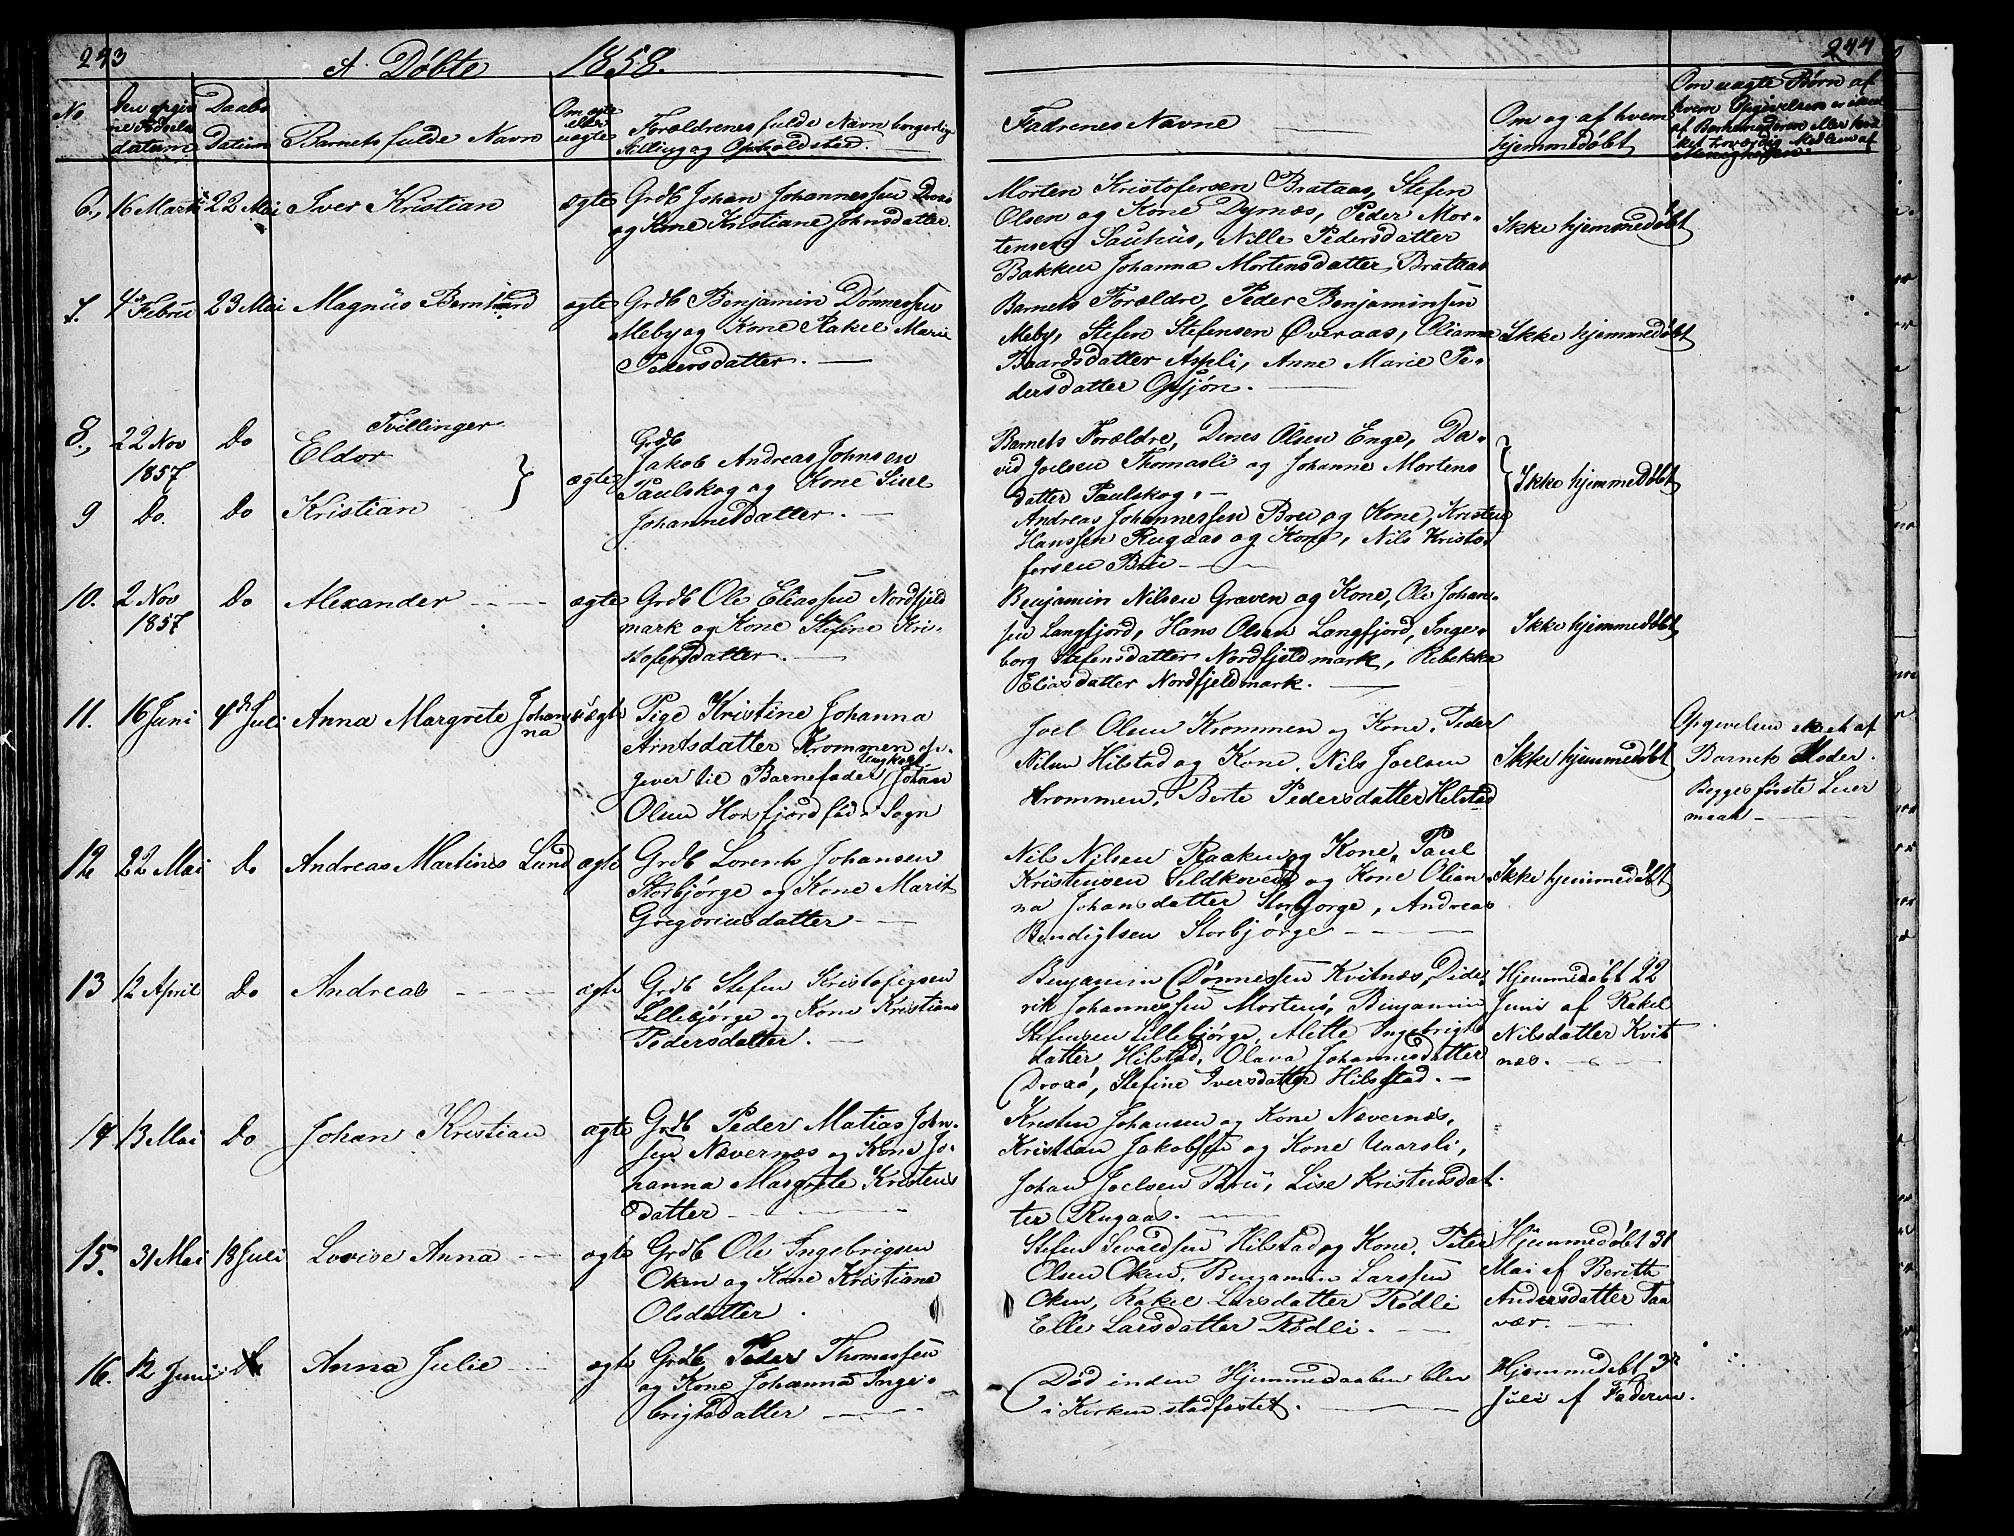 243
A. Døbte 1858.
244
No
Den opgiv
ne Fødsels
datum
Daabs
Datum
Barnets fulde Navn
Om ægte
eller
uægte
Forældrenes fulde Navn borgerlige
Stilling og Opholdsted.
Fadrenes Navne
Om og af hvem
hjemmedøbt
Om uægte Børn af
hvem Opgivelsen er skeet
af Barnemoderen eller
Menigheden.
6., 16 Marts 22 Mai Iver Kristian ægte Grdb Johan Johannessen
og Kone Kristiane Johnsdatter.
Morten Kristofersen Brataas, Stefen
Olsen og Kone Dyrnæs, Peder Mor-
tensen Sauhus, Nille Pedersdatter
Bakken Johanna Mortensdatter Brataas
Ikke hjemmedøbt
7. 4de Febru 23 Mai Magnus Bernhard ægte Grdb Benjamin Dønnessen
Meby og Kone Rakel Marie
Pedersdatter.
Barnets Forældre, Peder Benjaminsen
Meby, Stefen Stefensen Øveraas, Olianna
Baardsdatter Aspli, Anne Marie Pe-
dersdatter Opsjøn.
Ikke hjemmedøbt
Tvillinger
8., 22 Nov Do Eldor
1857
9 Do. Do Kristian
ægte
Grdb
Jakob Andreas Johnsen
Paulskog og Kone Sisel
Johannesdatter.
Barnets Forældre, Dines Olsen Enge, Da-
vid Joelsen Thomasli og Johanne Mortens
datter Paulskog.
Andreas Johannessen Breu og Kone, Kristen
Hanssen Rugaas og Kone, Nils Kristo-
fersen Breu
Ikke hjemmedøbt
10. 2 Nov Do Alexander ægte Grdb Ole Eliassen Nordfjeld
1857 mark og Kone Stefine Kri-
stofersdatter.
Benjamin Nilsen Graven og Kone, Ole Johan-
sen Langfjord, Hans Olsen Langfjord, Inge-
borg Stefensdatter Nordfjeldmark, Rebekka
Eliasdatter Nordfjeldmark.
Ikke hjemmedøbt
11. 16 Juni 4de Juli Anna Margrete Johan
na
uægte Pige Kristine Johanna
Arntsdatter Krommen op-
Ungkarl
giver til Barnefader Johan
Olsen Horsfjord Sogn
Joel Olsen Krommen og Kone, Peder
Nilsen Hilstad og Kone, Nils Joelsen
Krommen, Berte Pedersdatter Hilstad
Ikke hjemmedøbt
Opgivelsen skeet af
Barnets Moder.
Begges første Leier
maal
12 22 Mai do Andreas Martines Lund ægte Grdb Lorents Johansen
Storbjørge og Kone Marit
Gregoriusdatter
Nils Nilsen Raaken og Kone, Paul
Kristensen og Kone Olian
na Johansdatter Storbjørge, Andreas
Bendigtsen Storbjørge
Ikke hjemmedøbt
13 12 April Do Andreas ægte Grdb Stefen Kristofersen
Lillebjørge og Kone Kristiane
Pedersdatter.
Benjamin Dønnessen Kvitnæs, Dide-
rik Johannessen Mortenø, Benjamin
Stefensen Lillebjørge, Alette Ingebrigts
datter Hilstad, Olava Johannesdatter
Stefine Iversdatter Hilstad.
Hjemmedøbt 22
Juni af Rakel
Nilsdatter Kvit
næs.
14 13 Mai Do Johan Kristian ægte Grdb Peder Matias John-
sen Nævernæs og Kone Jo-
hanna Margrete Kristens
datter
Kristen Johansen og Kone Nævernæs,
Kristian Jakobsen og Kone Uaarsli,
Johan Joelsen Breu, Lise Kristensdat
ter Rugaas.
15. 31 Mai 18 Juli Lovise Anna ægte Grdb Ole Ingebrigsen
Oken og Kone Kristiane
Olsdatter.
Stefen Sevaldsen Hilstad og Kone, Peter
Olsen Oken, Benjamin Larssen
Oken, Rakel Larsdatter Rødli
Elle Larsdatter Rødli.
Hjemmedøbt 31
Mai af Berith
Andersdatter Taa
vær.
16. 12 Juni Anna Julie ægte Grdb Peder Thomassen
og Kone Johanna Inge-
brigtsdatter
Død inden Hjemmedaaben blev
i Kirken stadfæstet.
Hjemmedøbt 3die
Juli af Faderen.